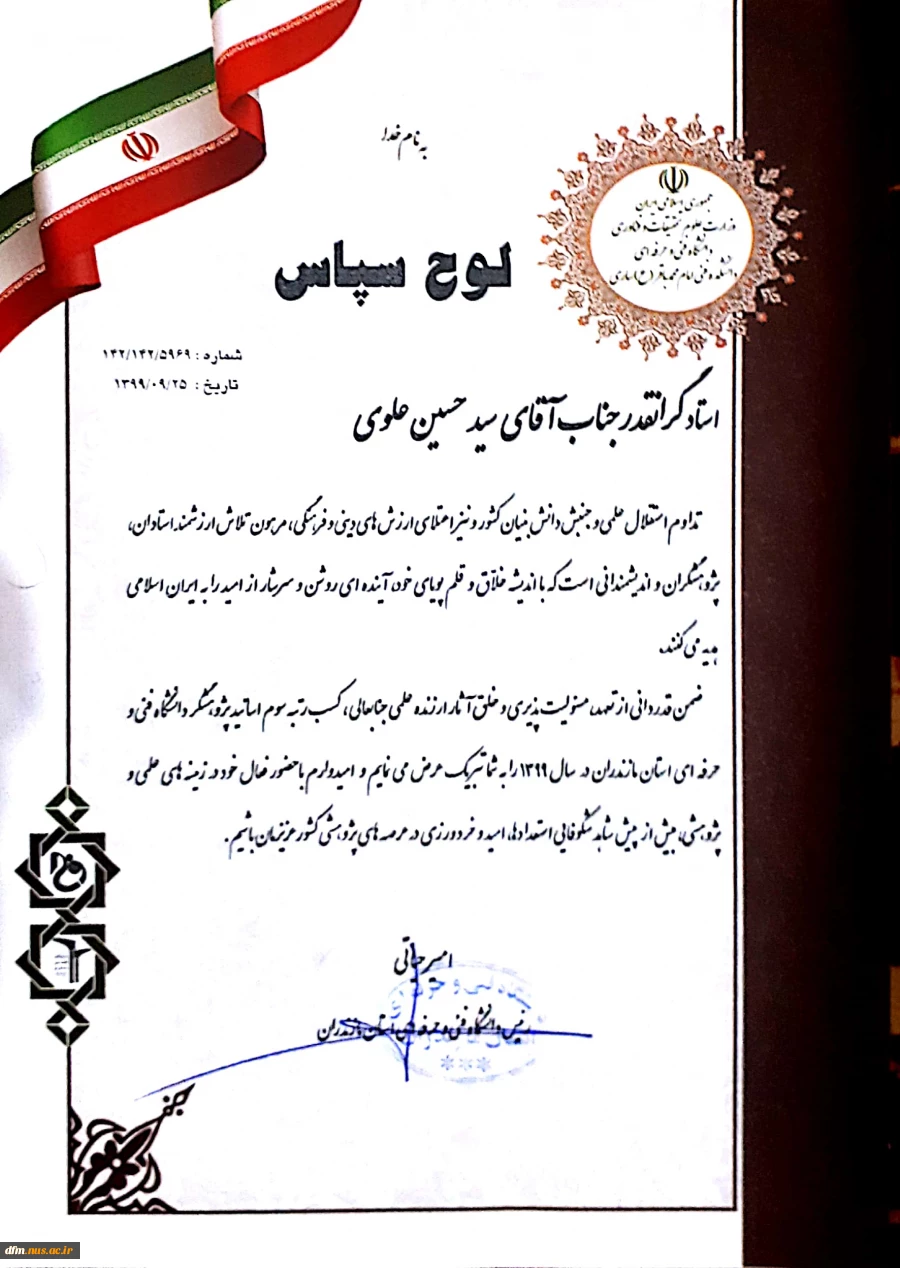 به نام خدا
جمهوری اسلامی ایران
وزارت علوم تحقیقات و فناوری
دانشگاه فنی و حرفه ای
دانشکده فنی امام محمد باقر (ع) ساری
لوح سپاس
شماره : ۱۴۲/۱۴۲/۵۹۶۹
تاریخ : ۱۳۹۹/۰۹/۲۵
استاد گرانقدر جناب آقای سید حسین علوی
تداوم استقلال علمی و جنبش دانش بنیان کشور و نیز اعتلای ارزش های دینی و فرهنگی، مرهون تلاش ارزشمند استادان،
پژوهشگران و اندیشمندانی است که با اندیشه خلاق و قلم پویای خود، آینده ای روشن و سرشار از امید را به ایران اسلامی
هدیه می کنند.
ضمن قدردانی از تعهد، مسئولیت پذیری و خلق آثار ارزنده علمی جنابعالی، کسب رتبه سوم اساتید پژوهشگر دانشگاه فنی و
حرفه ای استان مازندران در سال ۱۳۹۹ را به شما تبریک عرض می نمایم و امیدوارم با حضور فعال خود در زمینه های علمی و
پژوهشی، بیش از پیش شاهد شکوفایی استعدادها، امید و خردورزی در عرصه های پژوهشی کشور عزیزمان باشیم.
رئیس دانشگاه فنی و حرفه ای استان مازندران
dfm.nus.ac.ir